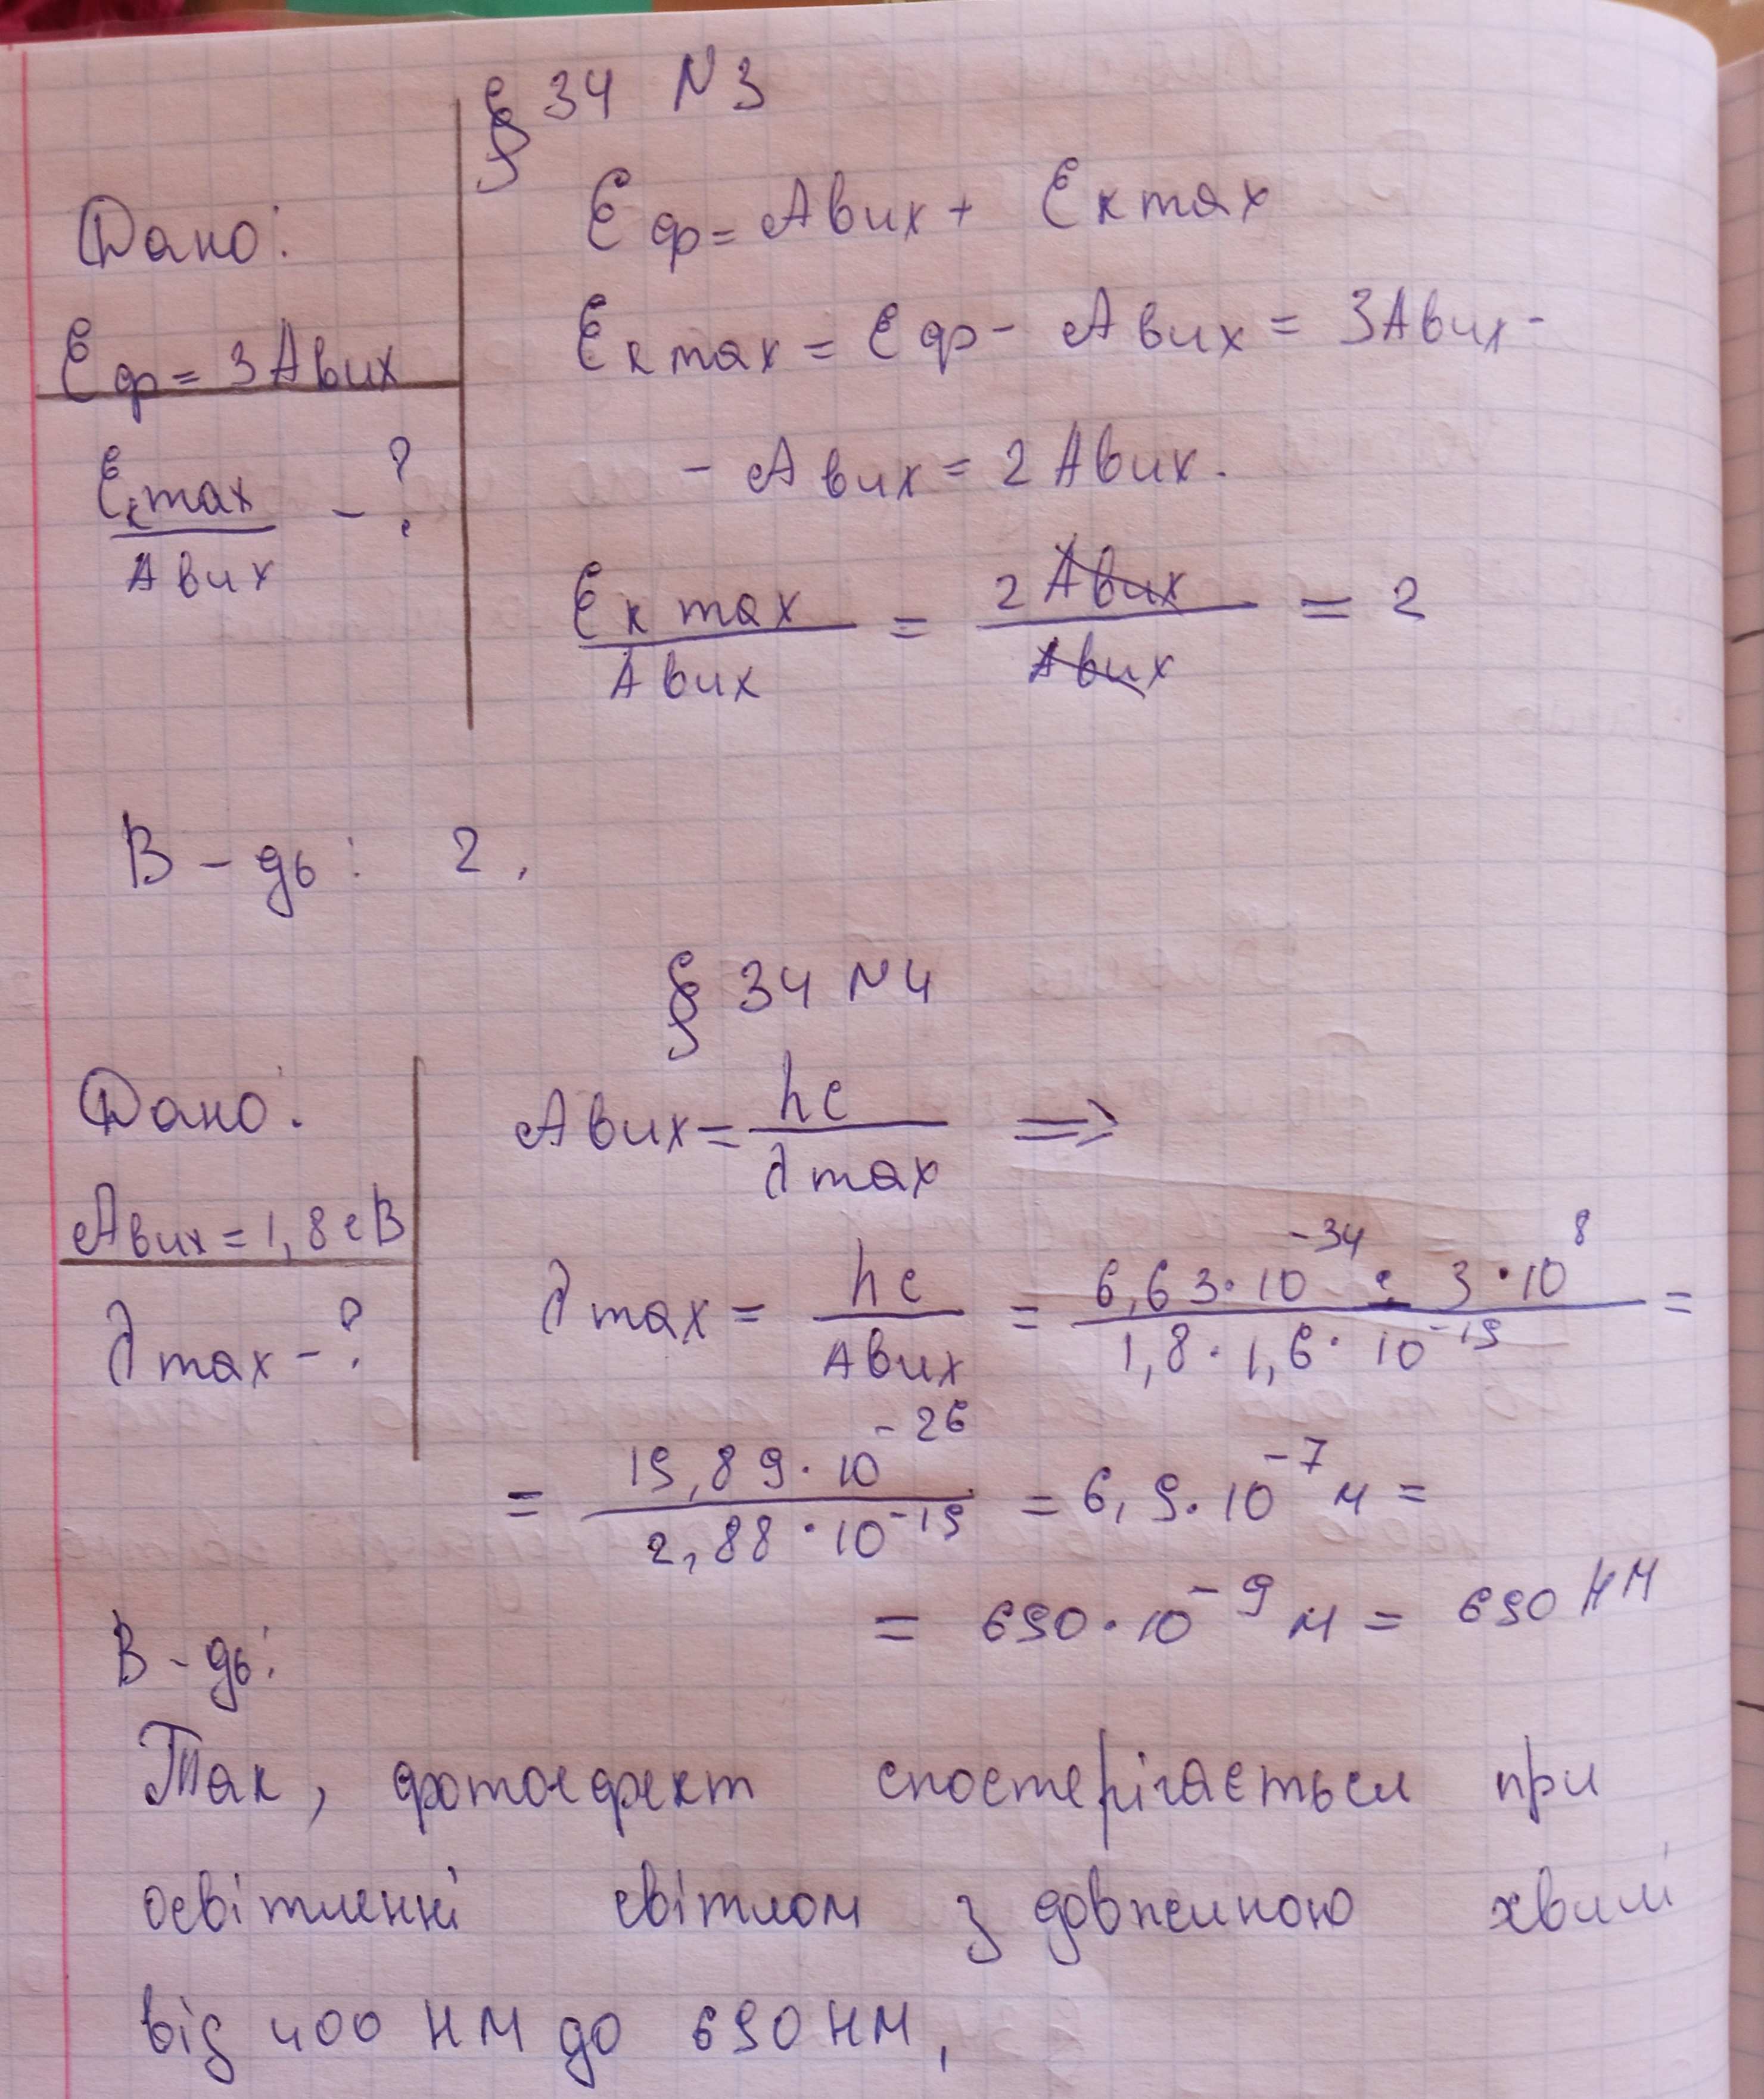 § 34 N 3
Дано:
Eф = 3Aвих
Eк max / Aвих - ?
Eф = Aвих + Eк max
Eк max = Eф - Aвих = 3Aвих -
- Aвих = 2Aвих.
Eк max / Aвих = 2Aвих / Aвих = 2
В-дь: 2.
§ 34 N 4
Дано:
Aвих = 1,8 еВ
λmax - ?
Aвих = hc / λmax =>
λmax = hc / Aвих = 6,63·10⁻³⁴ · 3·10⁸ / 1,8·1,6·10⁻¹⁹ =
= 19,89·10⁻²⁶ / 2,88·10⁻¹⁹ = 6,9·10⁻⁷ м =
= 690·10⁻⁹ м = 690 нм
В-дь:
Так, фотоефект спостерігається при
освітленні світлом з довжиною хвилі
від 400 нм до 690 нм,